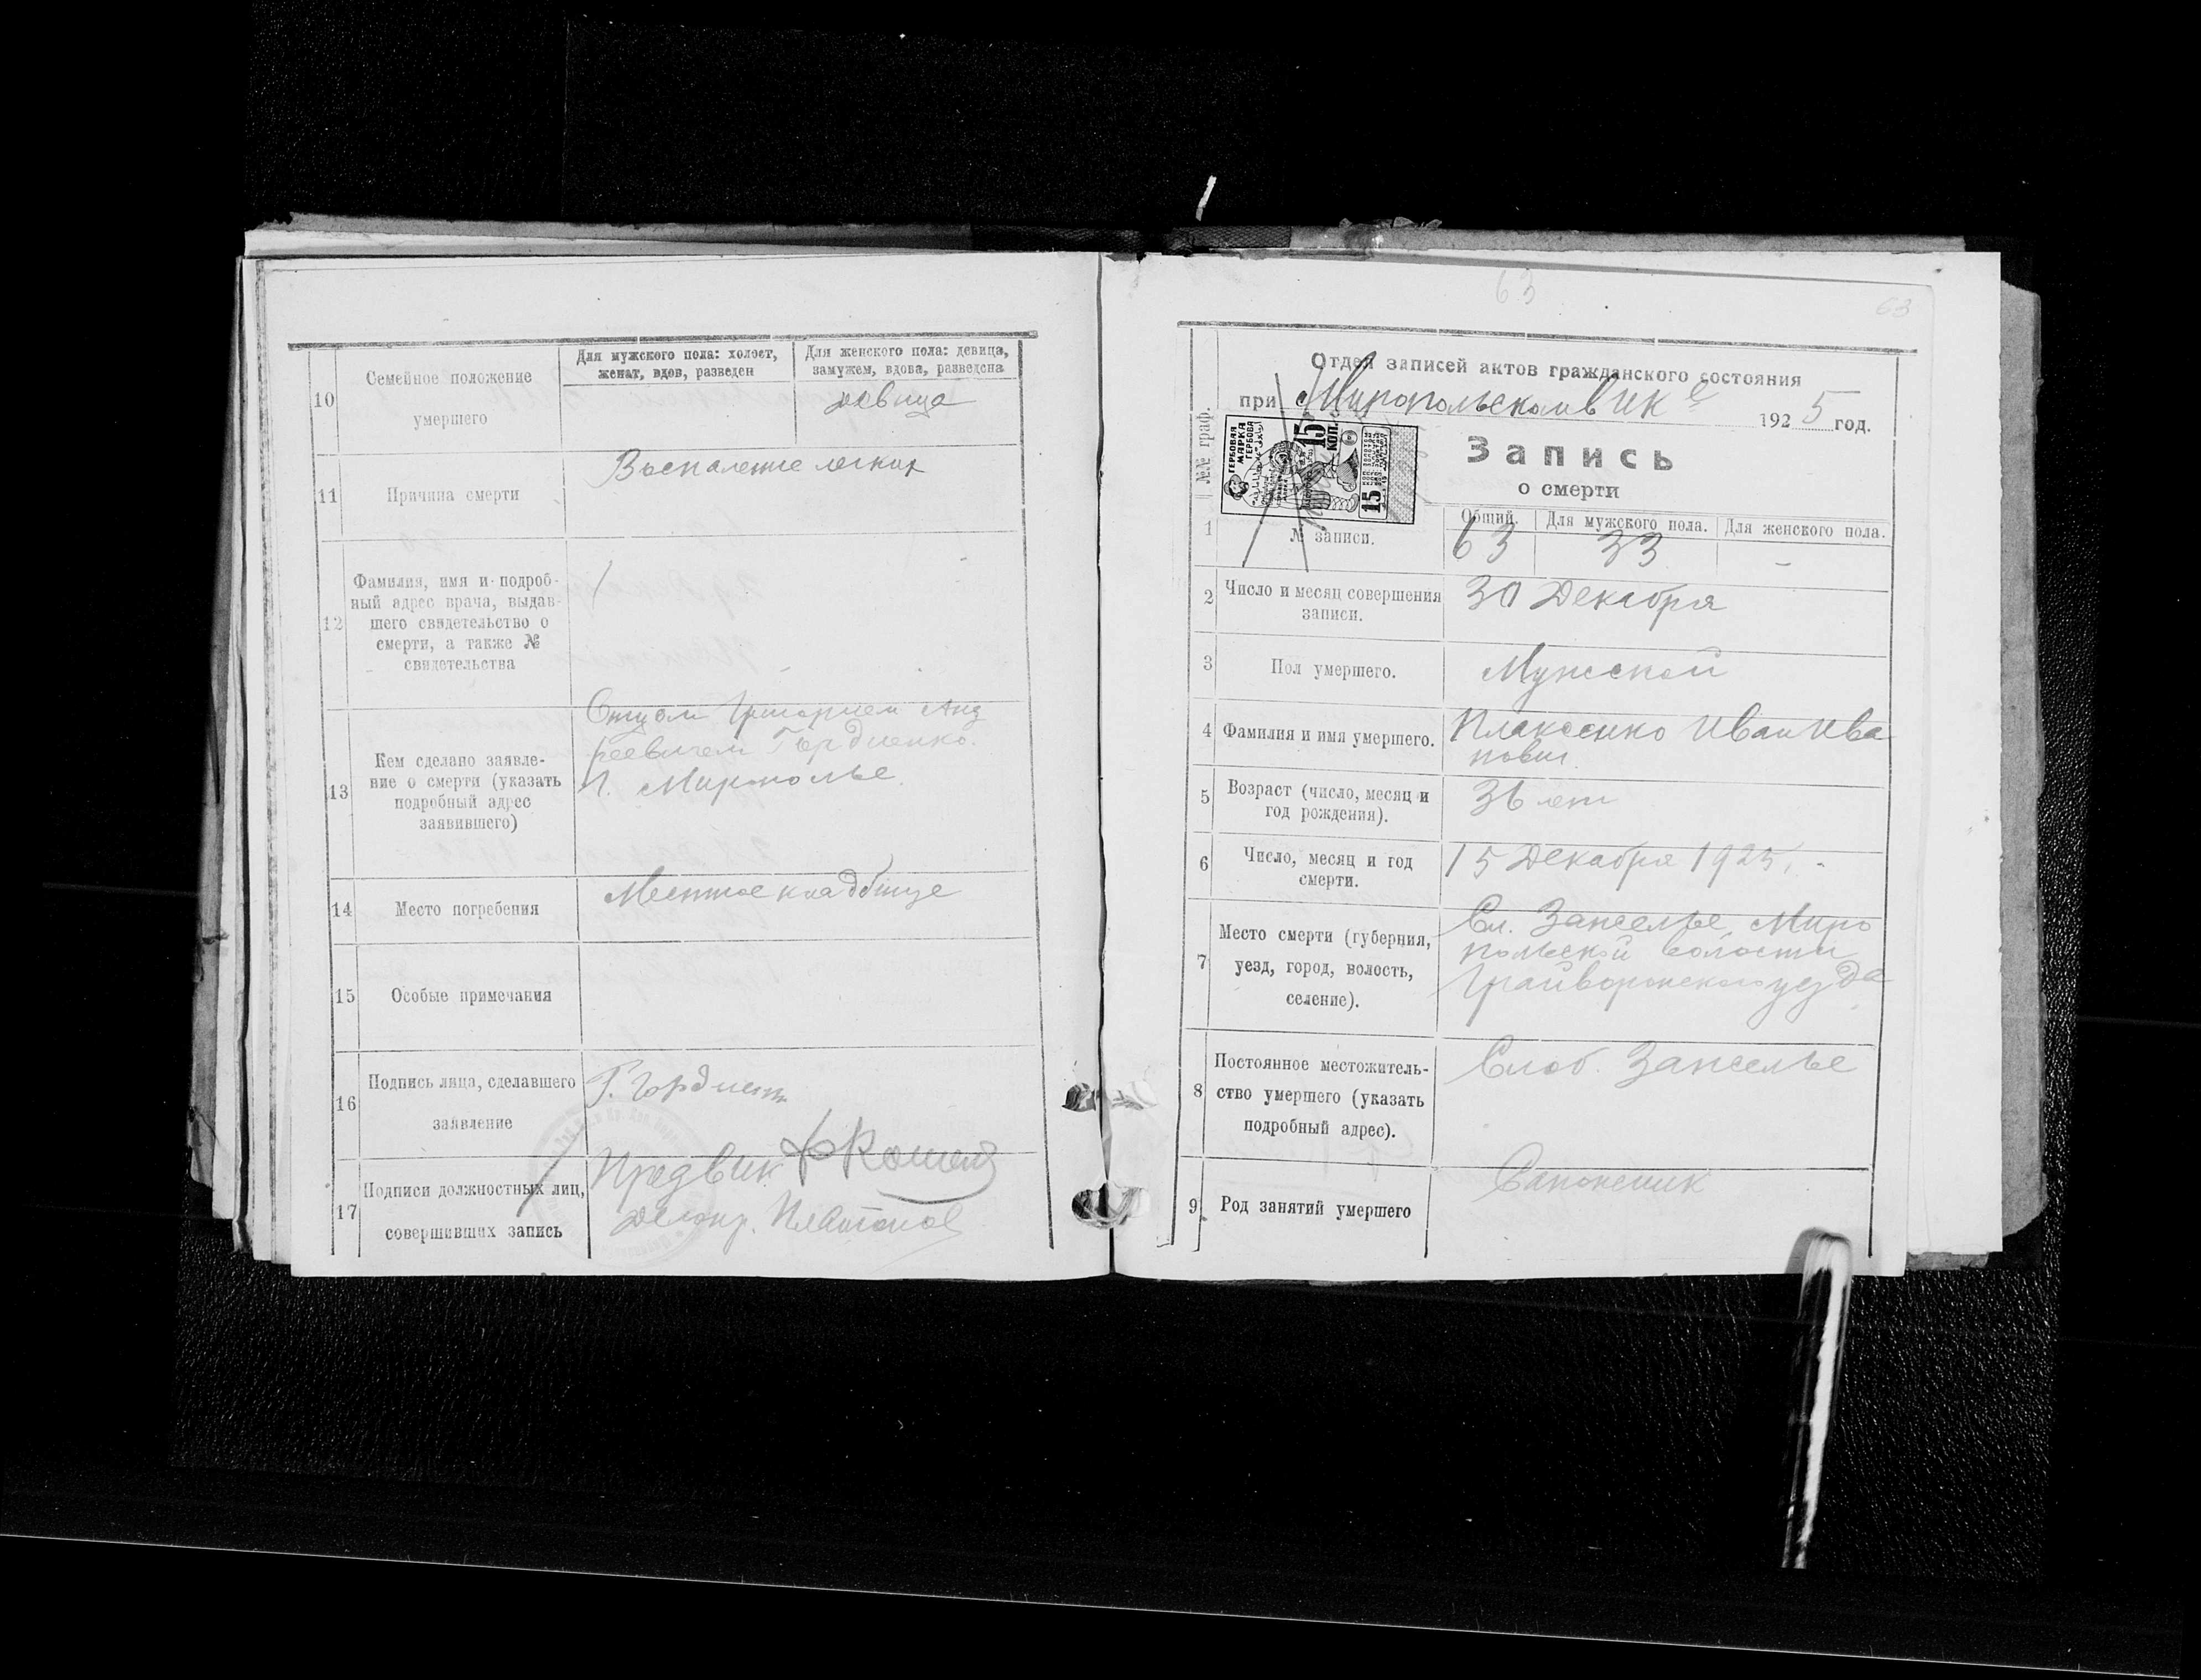 10
Семейное положение
умершего
Для мужского пола: холост,
женат, вдов, разведен
Для женского пола: девица,
замужем, вдова, разведена
девица
11
Причина смерти
Воспаление легких
12
Фамилия, имя и подроб-
ный адрес врача, выдав-
шего свидетельство о
смерти, а также №
свидетельства
13
Кем сделано заявле-
ние о смерти (указать
подробный адрес
заявившего)
Отцом Григорием Анд
реевичем Гордиенко.
г. Мирополье
14
Место погребения
Местное кладбище
15
Особые примечания
16
Подпись лица, сделавшего
заявление
Г. Гордиенк
17
Подписи должностных лиц,
совершивших запись
Предвик
Делопр.
63
63
№№ граф.
Отдел записей актов гражданского состояния
при Миропольском вике 1925 год.
ГЕРБОВАЯ
МАРКА
15
КОП.
15
Запись
о смерти
1
№ записи.
Общий. Для мужского пола. Для женского пола.
63 33 -
2
Число и месяц совершения
записи.
30 Декабря
3
Пол умершего.
Мужской
4
Фамилия и имя умершего.
Плаксенко Иван Ива
нович
5
Возраст (число, месяц и
год рождения).
36 лет
6
Число, месяц и год
смерти.
15 Декабря 1925.
7
Место смерти (губерния,
уезд, город, волость,
селение).
Сл. Запселье, Миро
польской волости
Грайворонского уезда
8
Постоянное местожитель-
ство умершего (указать
подробный адрес).
Слоб. Запселье
9
Род занятий умершего
Сапожник